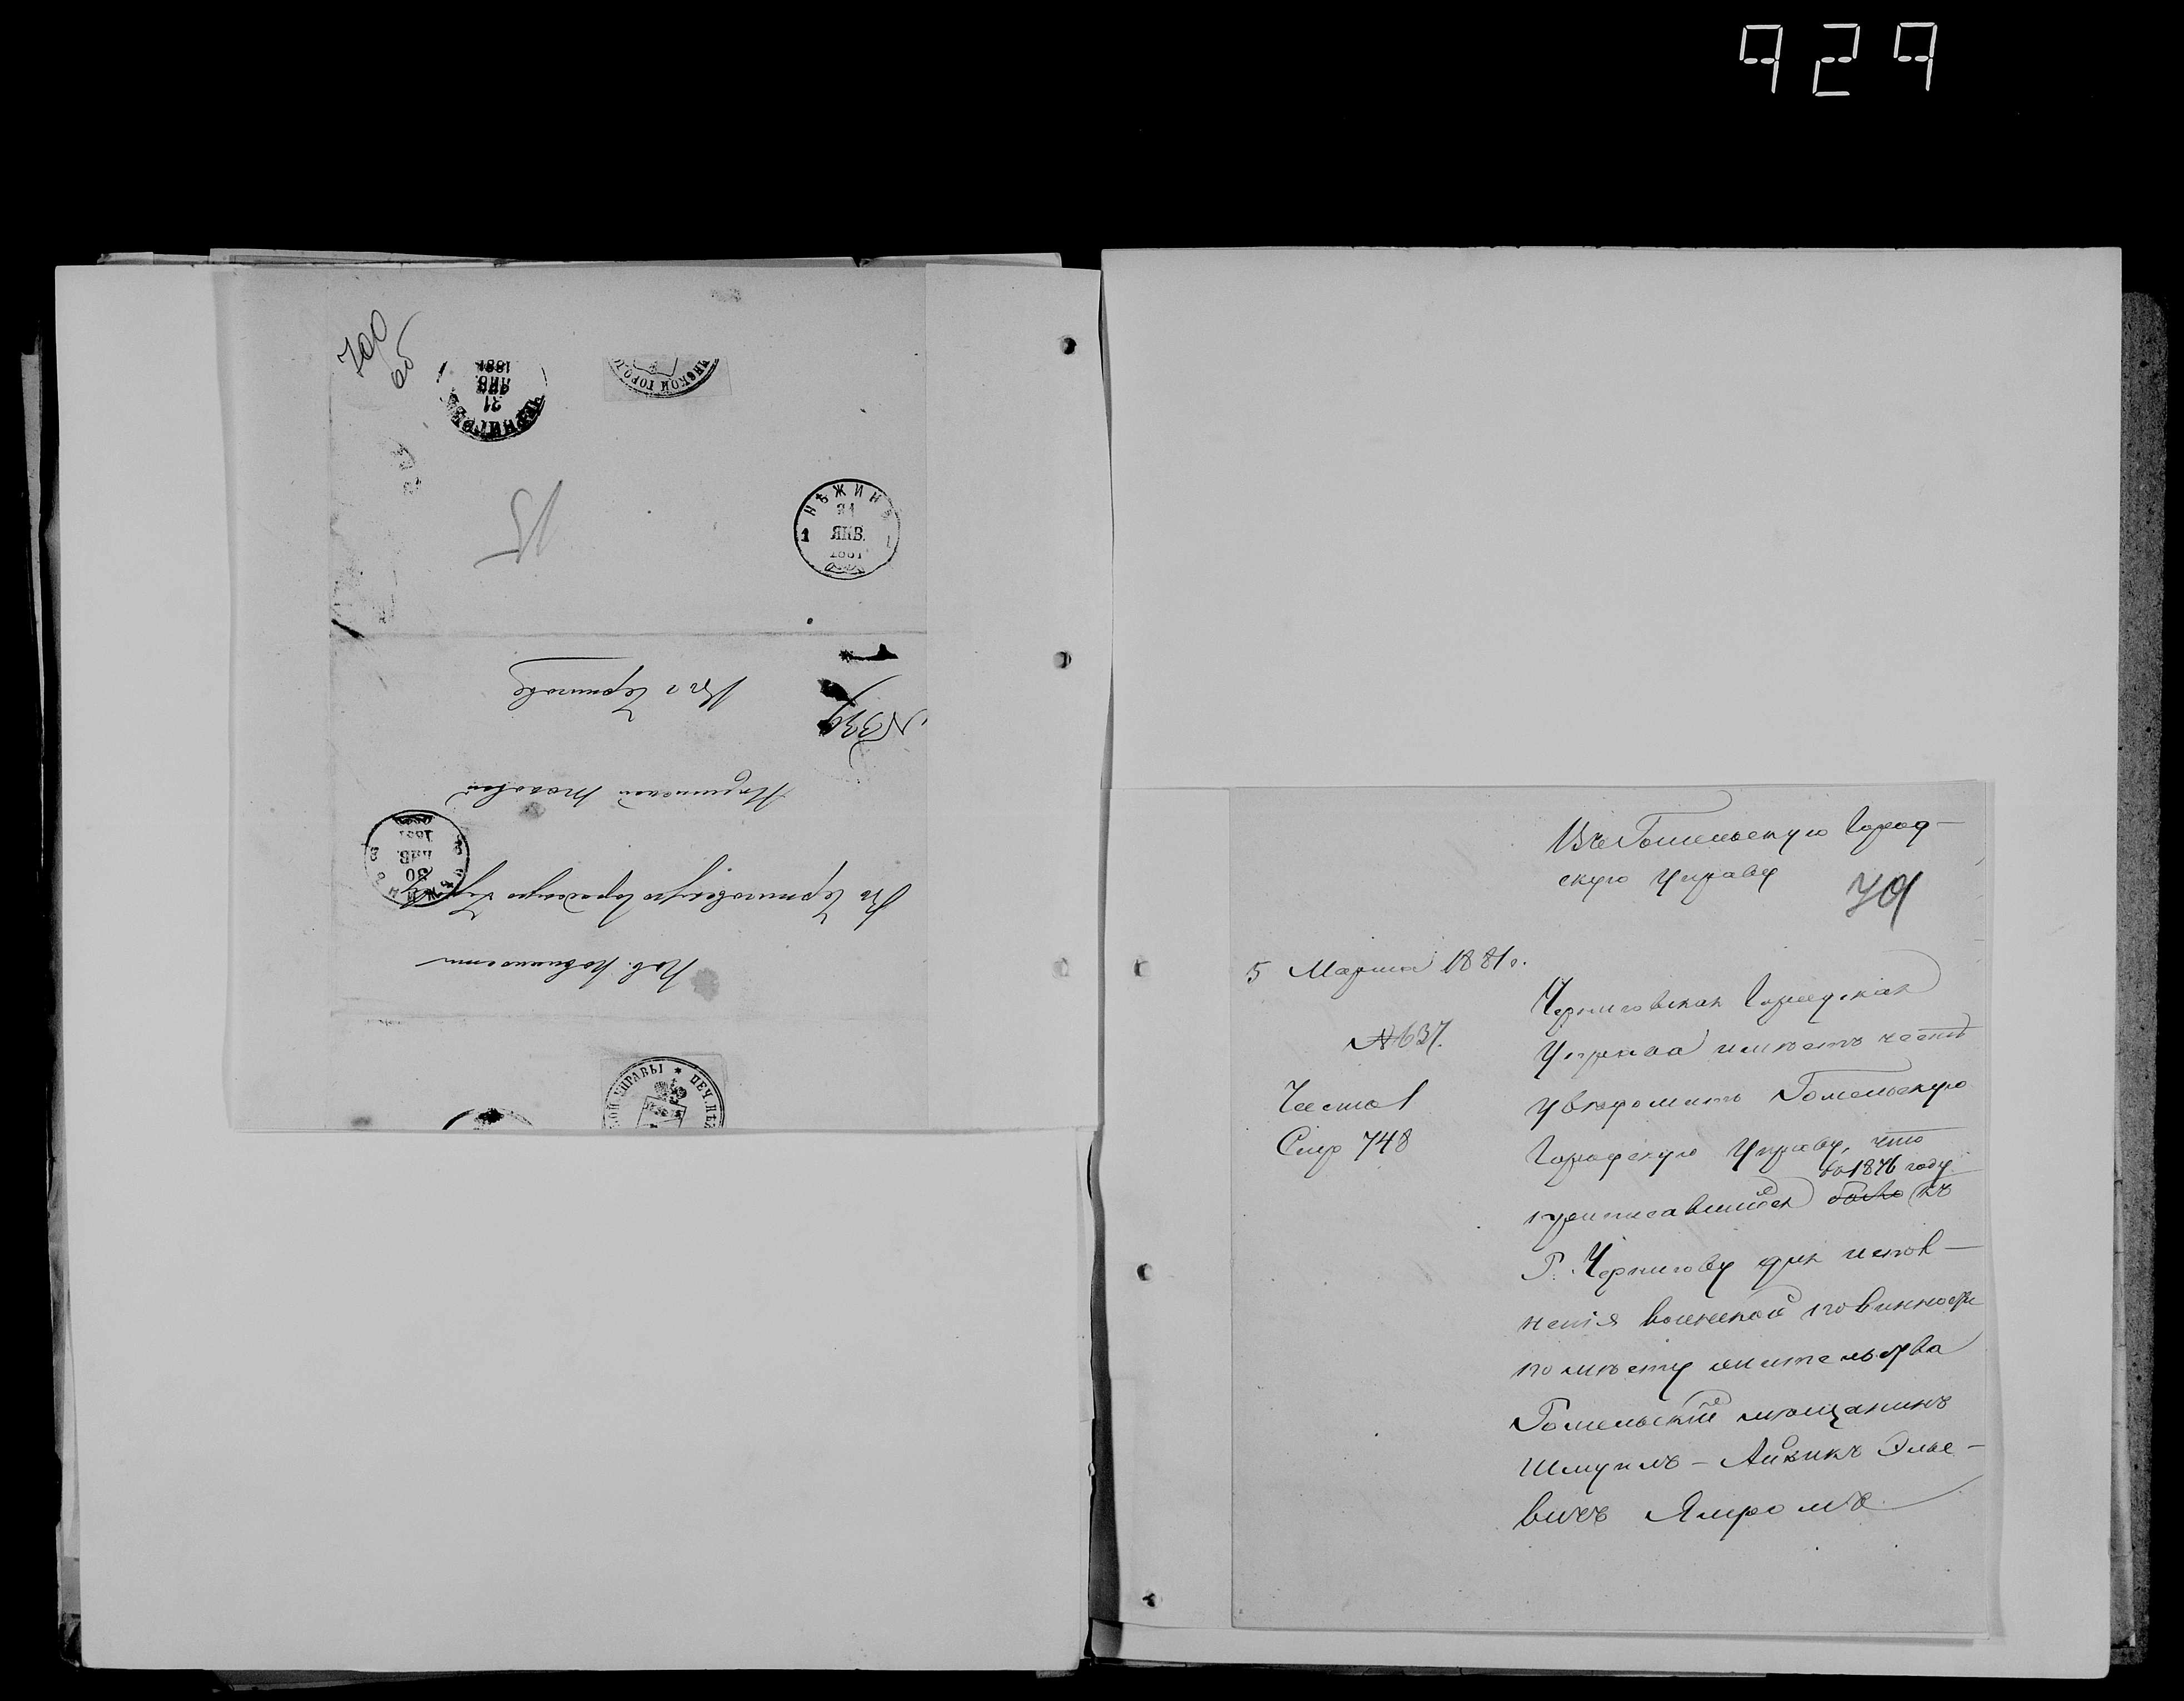 929
700
об
ЧЕРНИГОВЪ
31
ЯНВ.
1881
НСКОЙ ГОРО
НѢЖИНЪ
31
ЯНВ.
1881
1 1
15
Пов. повинности
Въ Черниговскую Городскую Управу
НѢЖИНЪ
30
ЯНВ.
1881
3 3
№339
Въ г Чернигове
ОЙ УПРАВЫ * ПЕЧ. НѢЖ
Въ Гомельскую Город-
скую Управу
701
5 Марта 1881 г.
№ 637.
Часто 1
Стр 748
Черниговская Городская
Управа имѣетъ честь
увѣдомить Гомельскую
Городскую Управу, что
въ 1876 году
приписавшійся къ
Г. Чернигову для испол-
ненія воинской повинности
по мѣсту жительства
Гомельскій мѣщанинъ
Шмуилъ - Айзикъ Элье-
вичъ Ямромъ